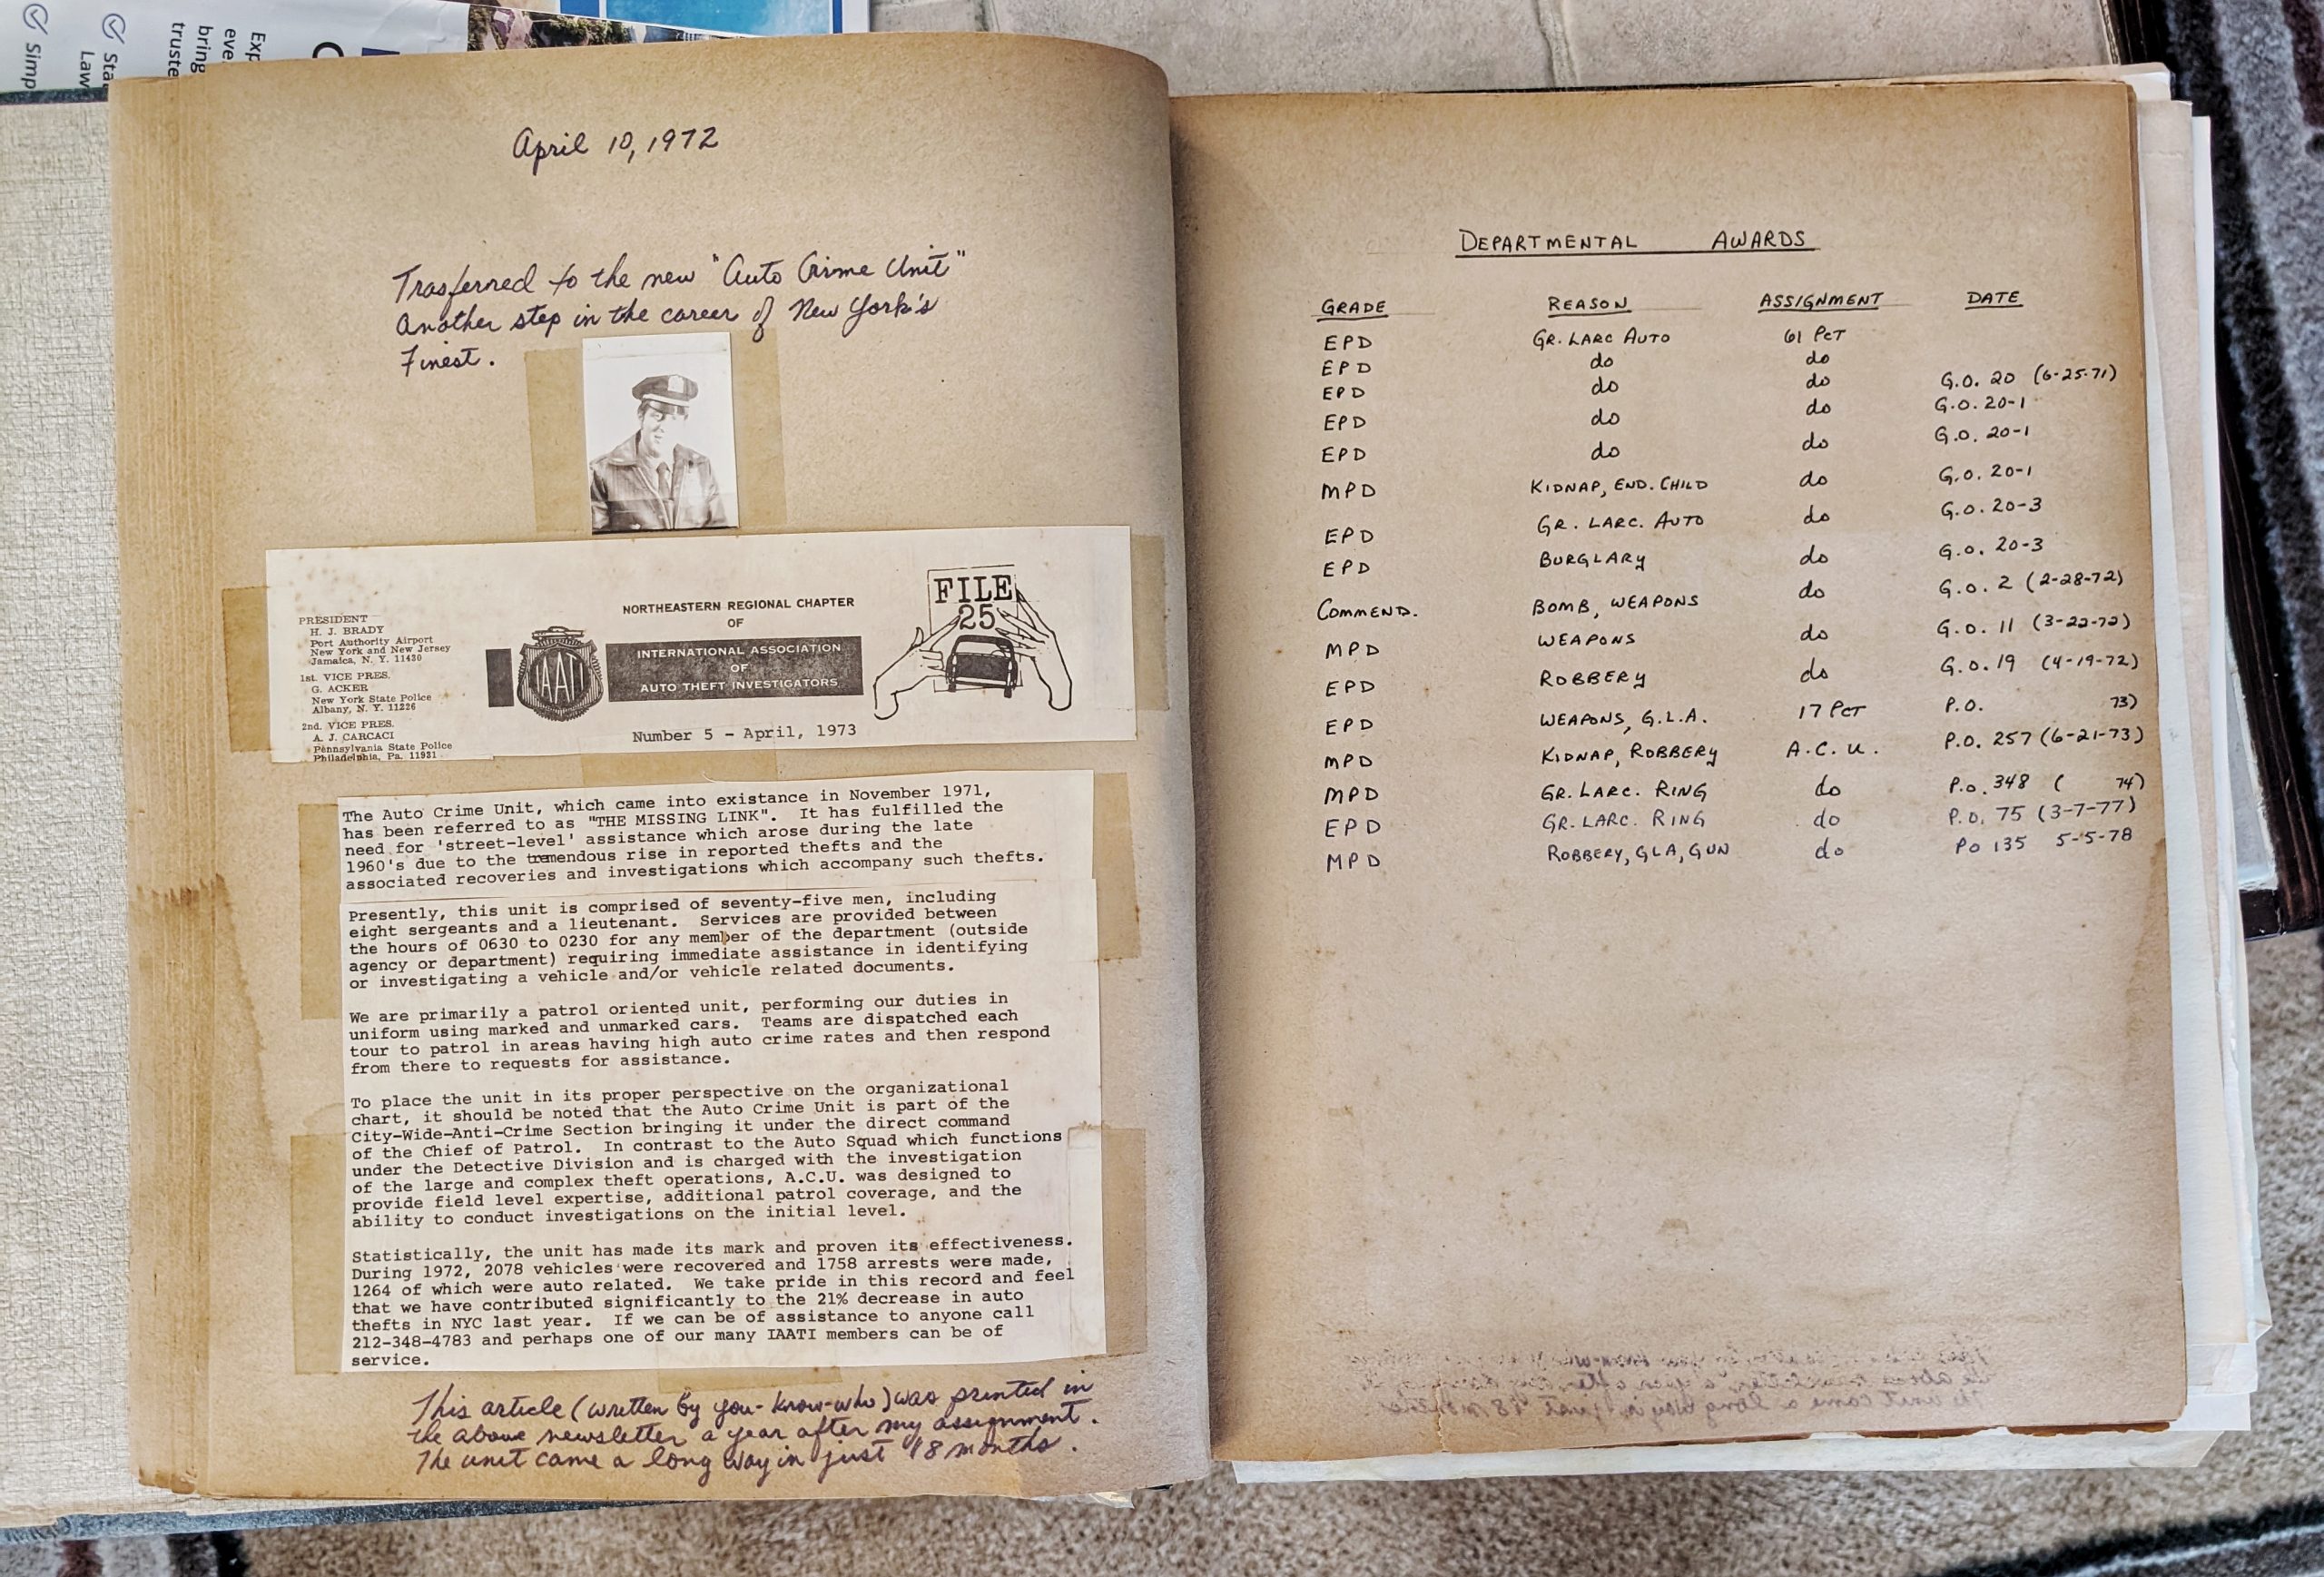 Simp
Sta
Law
Exp
eve
bring
truste
April 10, 1972
Trasferred to the new "Auto Crime Unit"
Another step in the career of New York's
Finest.
PRESIDENT
H. J. BRADY
Port Authority Airport
New York and New Jersey
Jamaica, N. Y. 11430
1st. VICE PRES.
G. ACKER
New York State Police
Albany, N. Y. 11226
2nd. VICE PRES.
A. J. CARCACI
Pennsylvania State Police
Philadelphia, Pa. 11931
IAATI
NORTHEASTERN REGIONAL CHAPTER
OF
INTERNATIONAL ASSOCIATION
OF
AUTO THEFT INVESTIGATORS
FILE
25
Number 5 - April, 1973
The Auto Crime Unit, which came into existance in November 1971,
has been referred to as "THE MISSING LINK". It has fulfilled the
need for 'street-level' assistance which arose during the late
1960's due to the tremendous rise in reported thefts and the
associated recoveries and investigations which accompany such thefts.
Presently, this unit is comprised of seventy-five men, including
eight sergeants and a lieutenant. Services are provided between
the hours of 0630 to 0230 for any member of the department (outside
agency or department) requiring immediate assistance in identifying
or investigating a vehicle and/or vehicle related documents.
We are primarily a patrol oriented unit, performing our duties in
uniform using marked and unmarked cars. Teams are dispatched each
tour to patrol in areas having high auto crime rates and then respond
from there to requests for assistance.
To place the unit in its proper perspective on the organizational
chart, it should be noted that the Auto Crime Unit is part of the
City-Wide-Anti-Crime Section bringing it under the direct command
of the Chief of Patrol. In contrast to the Auto Squad which functions
under the Detective Division and is charged with the investigation
of the large and complex theft operations, A.C.U. was designed to
provide field level expertise, additional patrol coverage, and the
ability to conduct investigations on the initial level.
Statistically, the unit has made its mark and proven its effectiveness.
During 1972, 2078 vehicles were recovered and 1758 arrests were made,
1264 of which were auto related. We take pride in this record and feel
that we have contributed significantly to the 21% decrease in auto
thefts in NYC last year. If we can be of assistance to anyone call
212-348-4783 and perhaps one of our many IAATI members can be of
service.
This article (written by you-know-who) was printed in
the above newsletter a year after my assignment.
The unit came a long way in just 18 months.
DEPARTMENTAL AWARDS
GRADE REASON ASSIGNMENT DATE
EPD GR. LARC AUTO 61 PCT
EPD do do
EPD do do G.O. 20 (6-25-71)
EPD do do G.O. 20-1
EPD do do G.O. 20-1
MPD KIDNAP, END. CHILD do G.O. 20-1
EPD GR. LARC. AUTO do G.O. 20-3
EPD BURGLARY do G.O. 20-3
COMMEND. BOMB, WEAPONS do G.O. 2 (2-28-72)
MPD WEAPONS do G.O. 11 (3-22-72)
EPD ROBBERY do G.O. 19 (4-19-72)
EPD WEAPONS, G.L.A. 17 PCT P.O. 73)
MPD KIDNAP, ROBBERY A.C.U. P.O. 257 (6-21-73)
MPD GR. LARC. RING do P.O. 348 ( 74)
EPD GR. LARC. RING do P.O. 75 (3-7-77)
MPD ROBBERY, GLA, GUN do PO 135 5-5-78